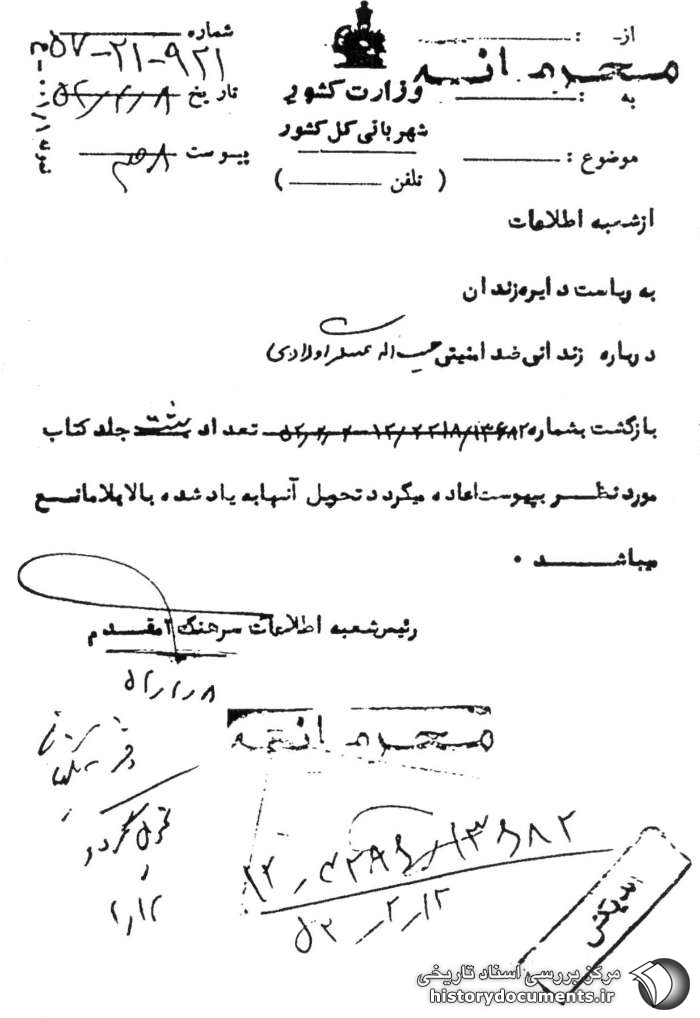 از :
محرمانه
به :
موضوع :
وزارت کشور
شهربانی کل کشور
( تلفن )
شماره ۹۲۱-۲۱-۵۷
تاریخ ۵۲/۲/۸
پیوست
ازشعبه اطلاعات
به ریاست دایره زندان
درباره زندانی ضد امنیتی حبیب اله عسگراولادی
بازگشت بشماره ۱۲/۲۲۱۸/۱۳۶۸۲-۵۲/۲/۲ تعداد هشت جلد کتاب
مورد نظر بپیوست اعاده میگردد تحویل آنها به یاد شده بالا بلامانع
میباشد .
رئیس شعبه اطلاعات سرهنگ ۲ مقدم
۵۲/۲/۸
محرمانه
۲/۱۲
۵۲-۲/۱۲
اندیکس
مرکز بررسی اسناد تاریخی
historydocuments.ir